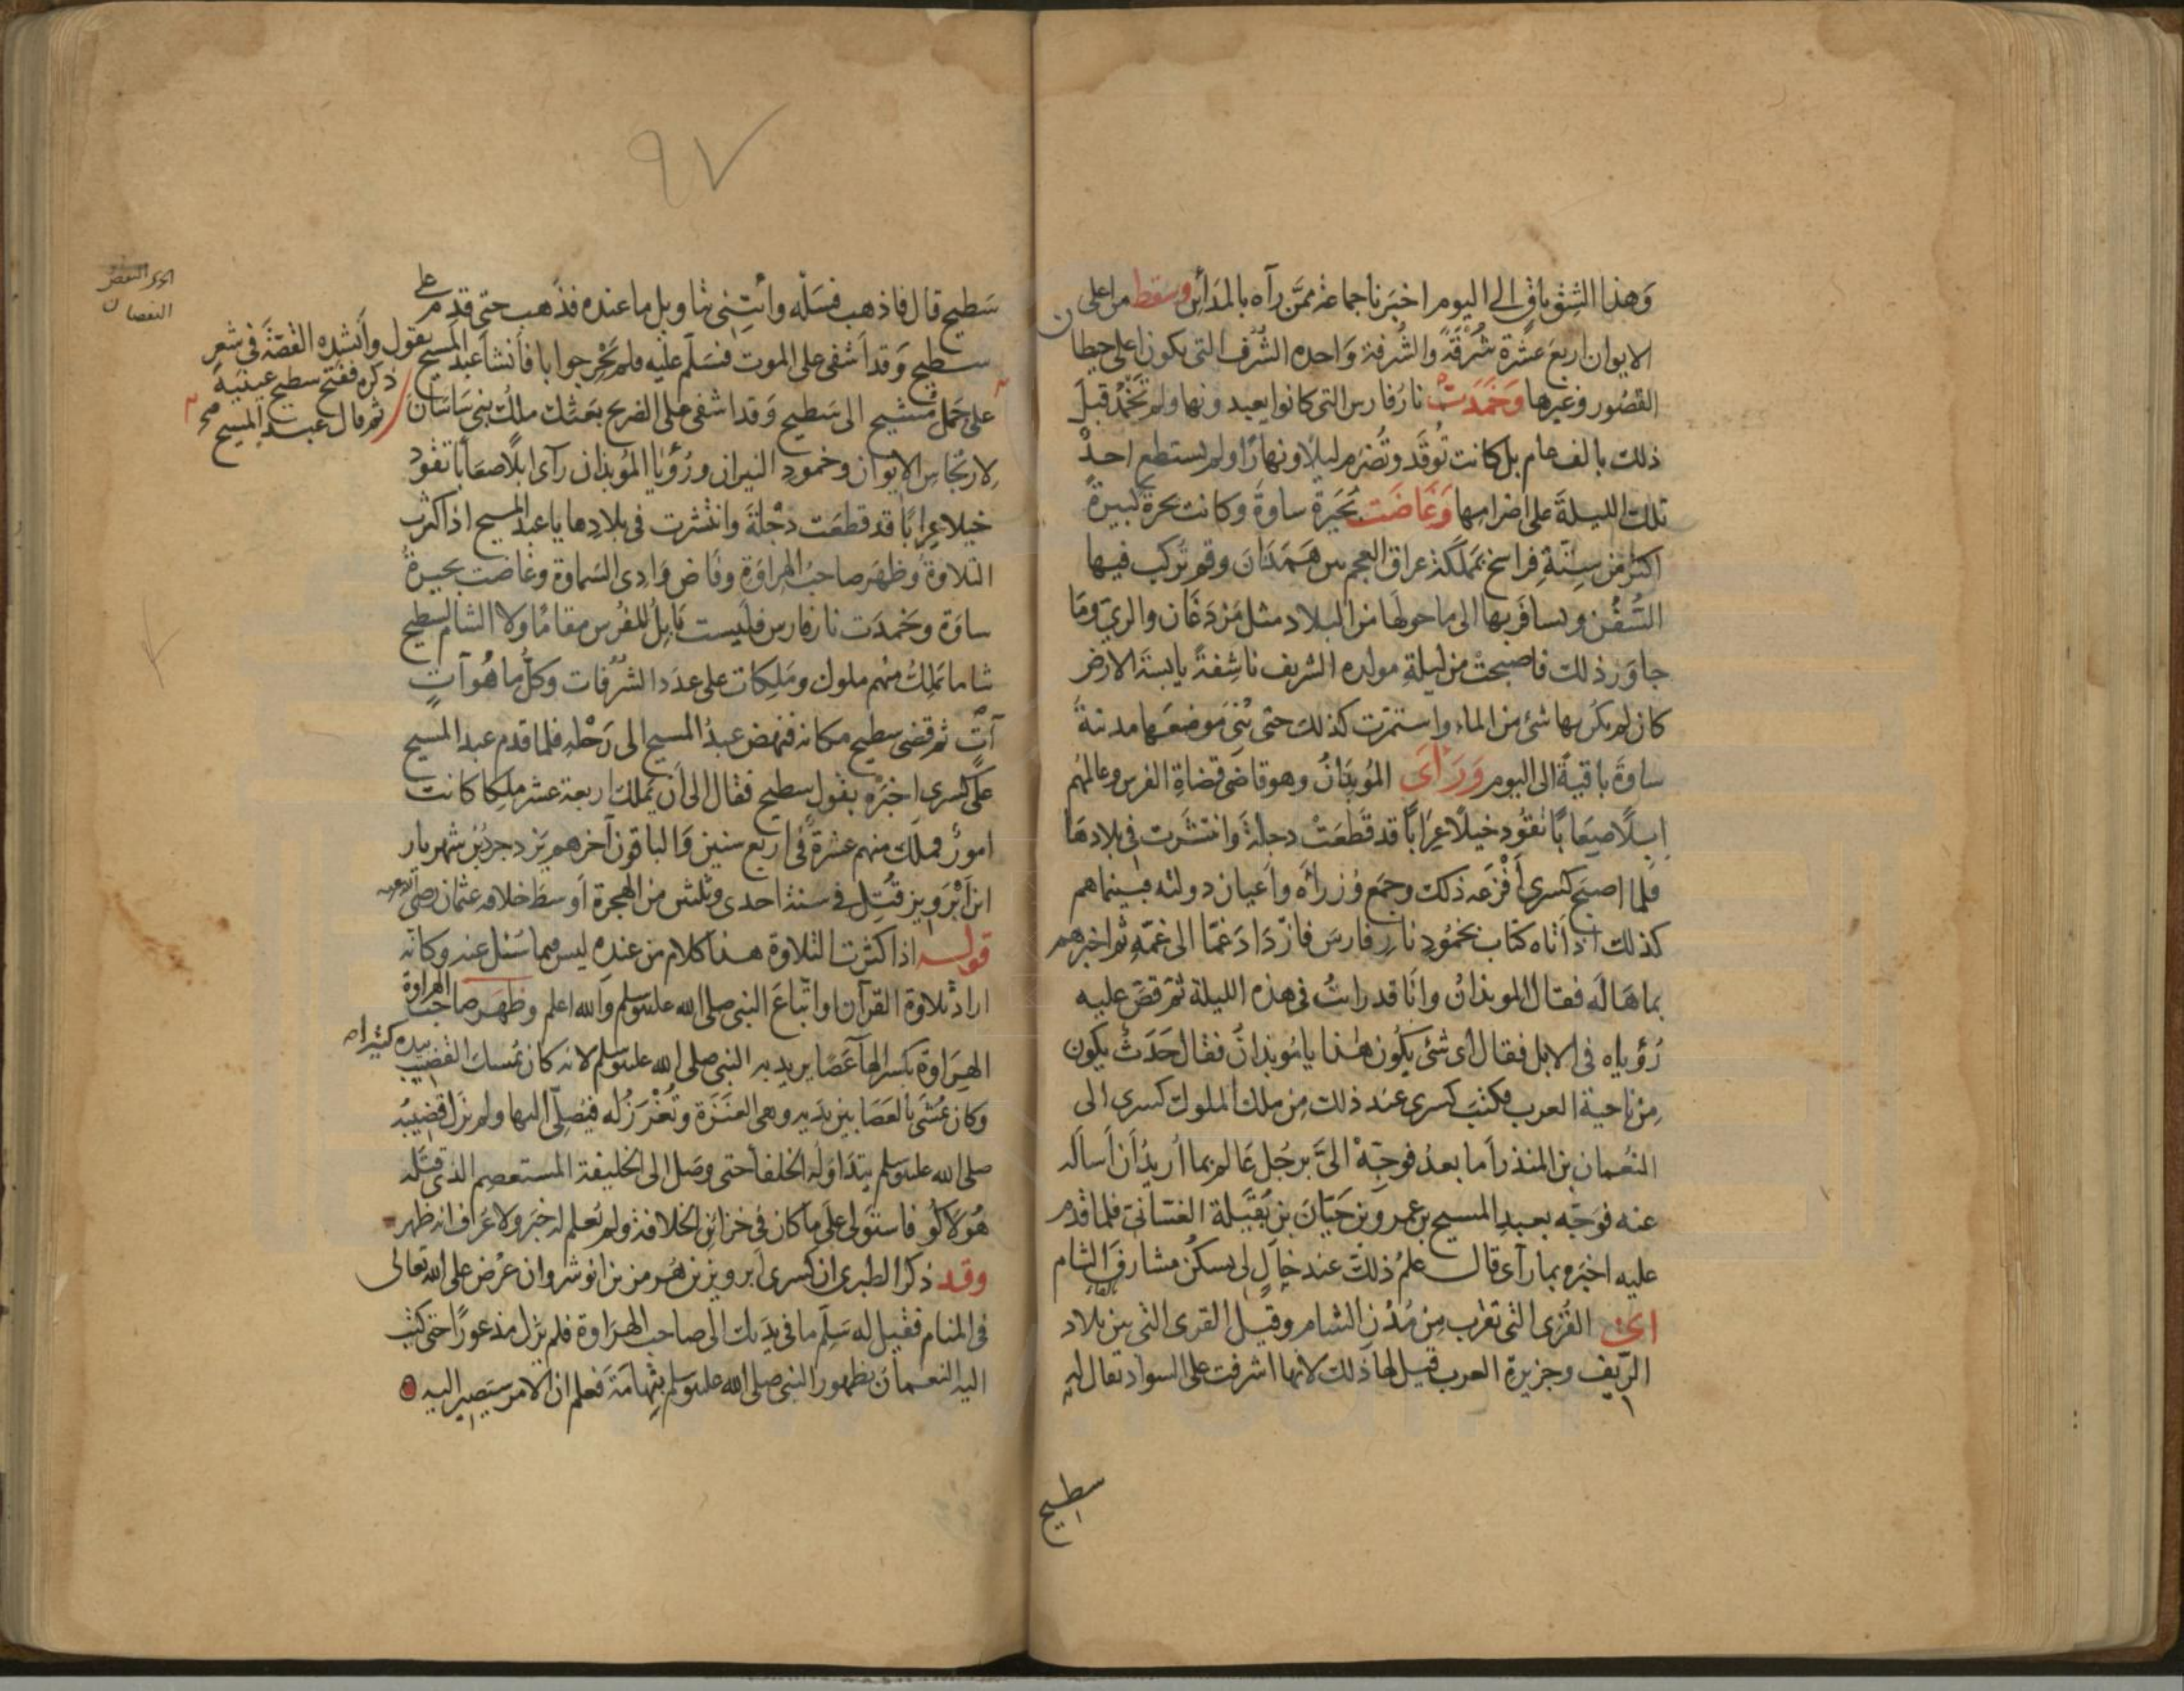 وَهذا الشِقّ باقٍ الى اليوم اخبَرنا جماعة ممّن رآه بالمدَاين وسَقط من اعلى
الايوان اربعَ عشْرة شُرْفَةً والشُرفة وَاحده الشُرَف التى يكون اعلى حيطان
القصُور وغيرها وَخَمَدَتْ نارُ فارس التى كانوا يعبدونها ولم تَخْمُدْ قبلَ
ذلك بالف عام بل كانت تُوقَد وتُضْرم ليلاً ونهارًا ولم يستطع احدٌ
تلك الليلةَ على اضرامها وَغَاضَت بُحَيرة ساوةَ وكانت بحرةً كبيرةً
اكثر من سِتّةِ فراسخ بمملكة عراق العجم بين هَمَدَان وقم تُركب فيها
السُّفُن ويسافَر بها الى ما حولها من البلاد مثل فَرْدَغَان والرى ومَا
جاوَر ذلك فاصبحتْ من ليلةِ مولده الشريف ناشِفةً يابسَة الارض
كان لم يكن بها شئ من الماء واستمرّت كذلك حتى بُنى مَوضعَها مدينة
ساوةَ باقيةً الى اليوم وَرَآى المُوبذانُ وهو قاضى قضاةِ الفرس وعالمهُم
اِبِلاً صِعَابًا تقُود خيلاً عِرَابًا قد قَطَعَتْ دجلةَ وانتشَرت فى بلادهَا
فلما اصبح كسرى أفْزَعه ذلك وجمَع وُزراءَه واَعيان دولته فبينما هم
كذلك اذ أتاه كتاب بخمُودِ نارِ فارسَ فازدَادَ غمًّا الى غمّه ثم اخبرهم
بما هَالَه فقال الموبذانُ وانَا قد رايتُ فى هذه الليلة ثم قصّ عليه
رُؤياه فى الابل فقال اى شئ يكون هٰذا يا مُوبذانُ فقال حَدَثٌ يكون
مِنْ ناحية العرب فكتبَ كسرى عند ذلك مِن ملك الملوك كسرى الى
النُعمان بن المنذر أما بعدُ فوجّهْ الىَّ برجُل عَالم بما اُريدُ أن أساله
عنه فوَجّه بعبدِ المسيح بن عمرو بن حَيّانَ بن بُقَيْلة الغسّانى فلما قدم
عليه اخبَره بما رآى قال علمُ ذلك عند خالٍ لى يسكن مشارفَ الشام
اى القُرى التى تقرب مِن مُدُن الشام وقيل القرى التى بين بلاد
الرّيف وجزيرة العرب قيل لها ذلك لانها اشرفت على السواد يقال له
سطيح
٩٧
سَطيح قال فاذهب فسَلْه وائتِنى بتاويل ما عنده فذهب حتى قدم على
سطيح وَقد اَشفى على الموت فسَلّم عليْه فلم يُحْرِ جوابا فانشأ عبد المسيح يقول وأنشده القصّة فى شعر
ذكره ففتح سطيح عينيهَ
ثم قال عبد المسيح صح
على جَمَل مُشيح الى سَطيح وَقد اشفى على الضريح بَعَثك ملكُ بنى سَاسَان
لِارتجاس الايوان وخمودِ النيران ورُؤيا المُوبذان رآى ابلاً صعَابًا تقُود
خيلا عِرابًا قد قطعَت دجْلةَ وانتشرت فى بلادها يا عبد المسيح اذا كثرت
التلاوة وظهَر صاحبُ الهراوةِ وفاض وَادى السَماوة وغَاضت بحيرةُ
ساوَة وخَمدَت نار فارس فليست بَابِلُ للفُرس مقامًا ولا الشام لسطيح
شاما يَملِك منهم ملوك ومَلِكات على عدَد الشرُفات وكلّ ما هُو آتٍ
آتٍ ثم قضى سطيح مكانه فنهضَ عبدُ المسيح الى رَحْله فلما قدم عبد المسيح
على كسرى اخبَرَه بقول سطيح فقال الى أن يملك اربعة عشر ملِكا كانت
امورٌ فملك منهم عشرة فى اربع سنين وَالباقون آخرهم يَزدجرد بن شهريار
ابن أَبْرَويز قُتِل فى سنة احدى وثلثين من الهجرة اَوسط خلافه عثمان رضى الله عنه
قوله اذا كثرت التلاوة هذا كلام من عنده ليس مما سُئل عنه وكانّه
اراد تلاوة القرآن واتّباعَ النبى صلى الله عليه وسلم والله اعلم وظهر صاحب الهراوة
الهِرَاوة بكسر الهآ عَصًا يريد به النبى صلى الله عليه وسلم لانه كان يُمسك القضيب بيده كثيرا
وكان يُمشَى بالعَصَا بين يدَيه وهى العنَزَة وتُغْرَزُ له فيُصلّى اليها ولم يزل قضيبُه
صلى الله عليه وسلم يتدَاوَله الخلفآ حتى وصَل الى الخليفة المستعصم الذى قتَله
هُولاكُو فاستولى على مَا كان فى خزائن الخلافة ولم يُعلم له خبَر ولا عُرف انه ظهر
وقد ذكر الطبرى ان كسرى ابرويز بن هُرمز بن انوشروان عُرض على الله تعالى
فى المنام فقيل له سَلّم ما فى يدَيك الى صاحب الهِرَاوة فلم يَزَل مذعورًا حتى كتب
اليه النعمانُ بظهور النبى صلى الله عليه وسلم بتِهَامَةَ فعلم ان الامر سيَصير اليه